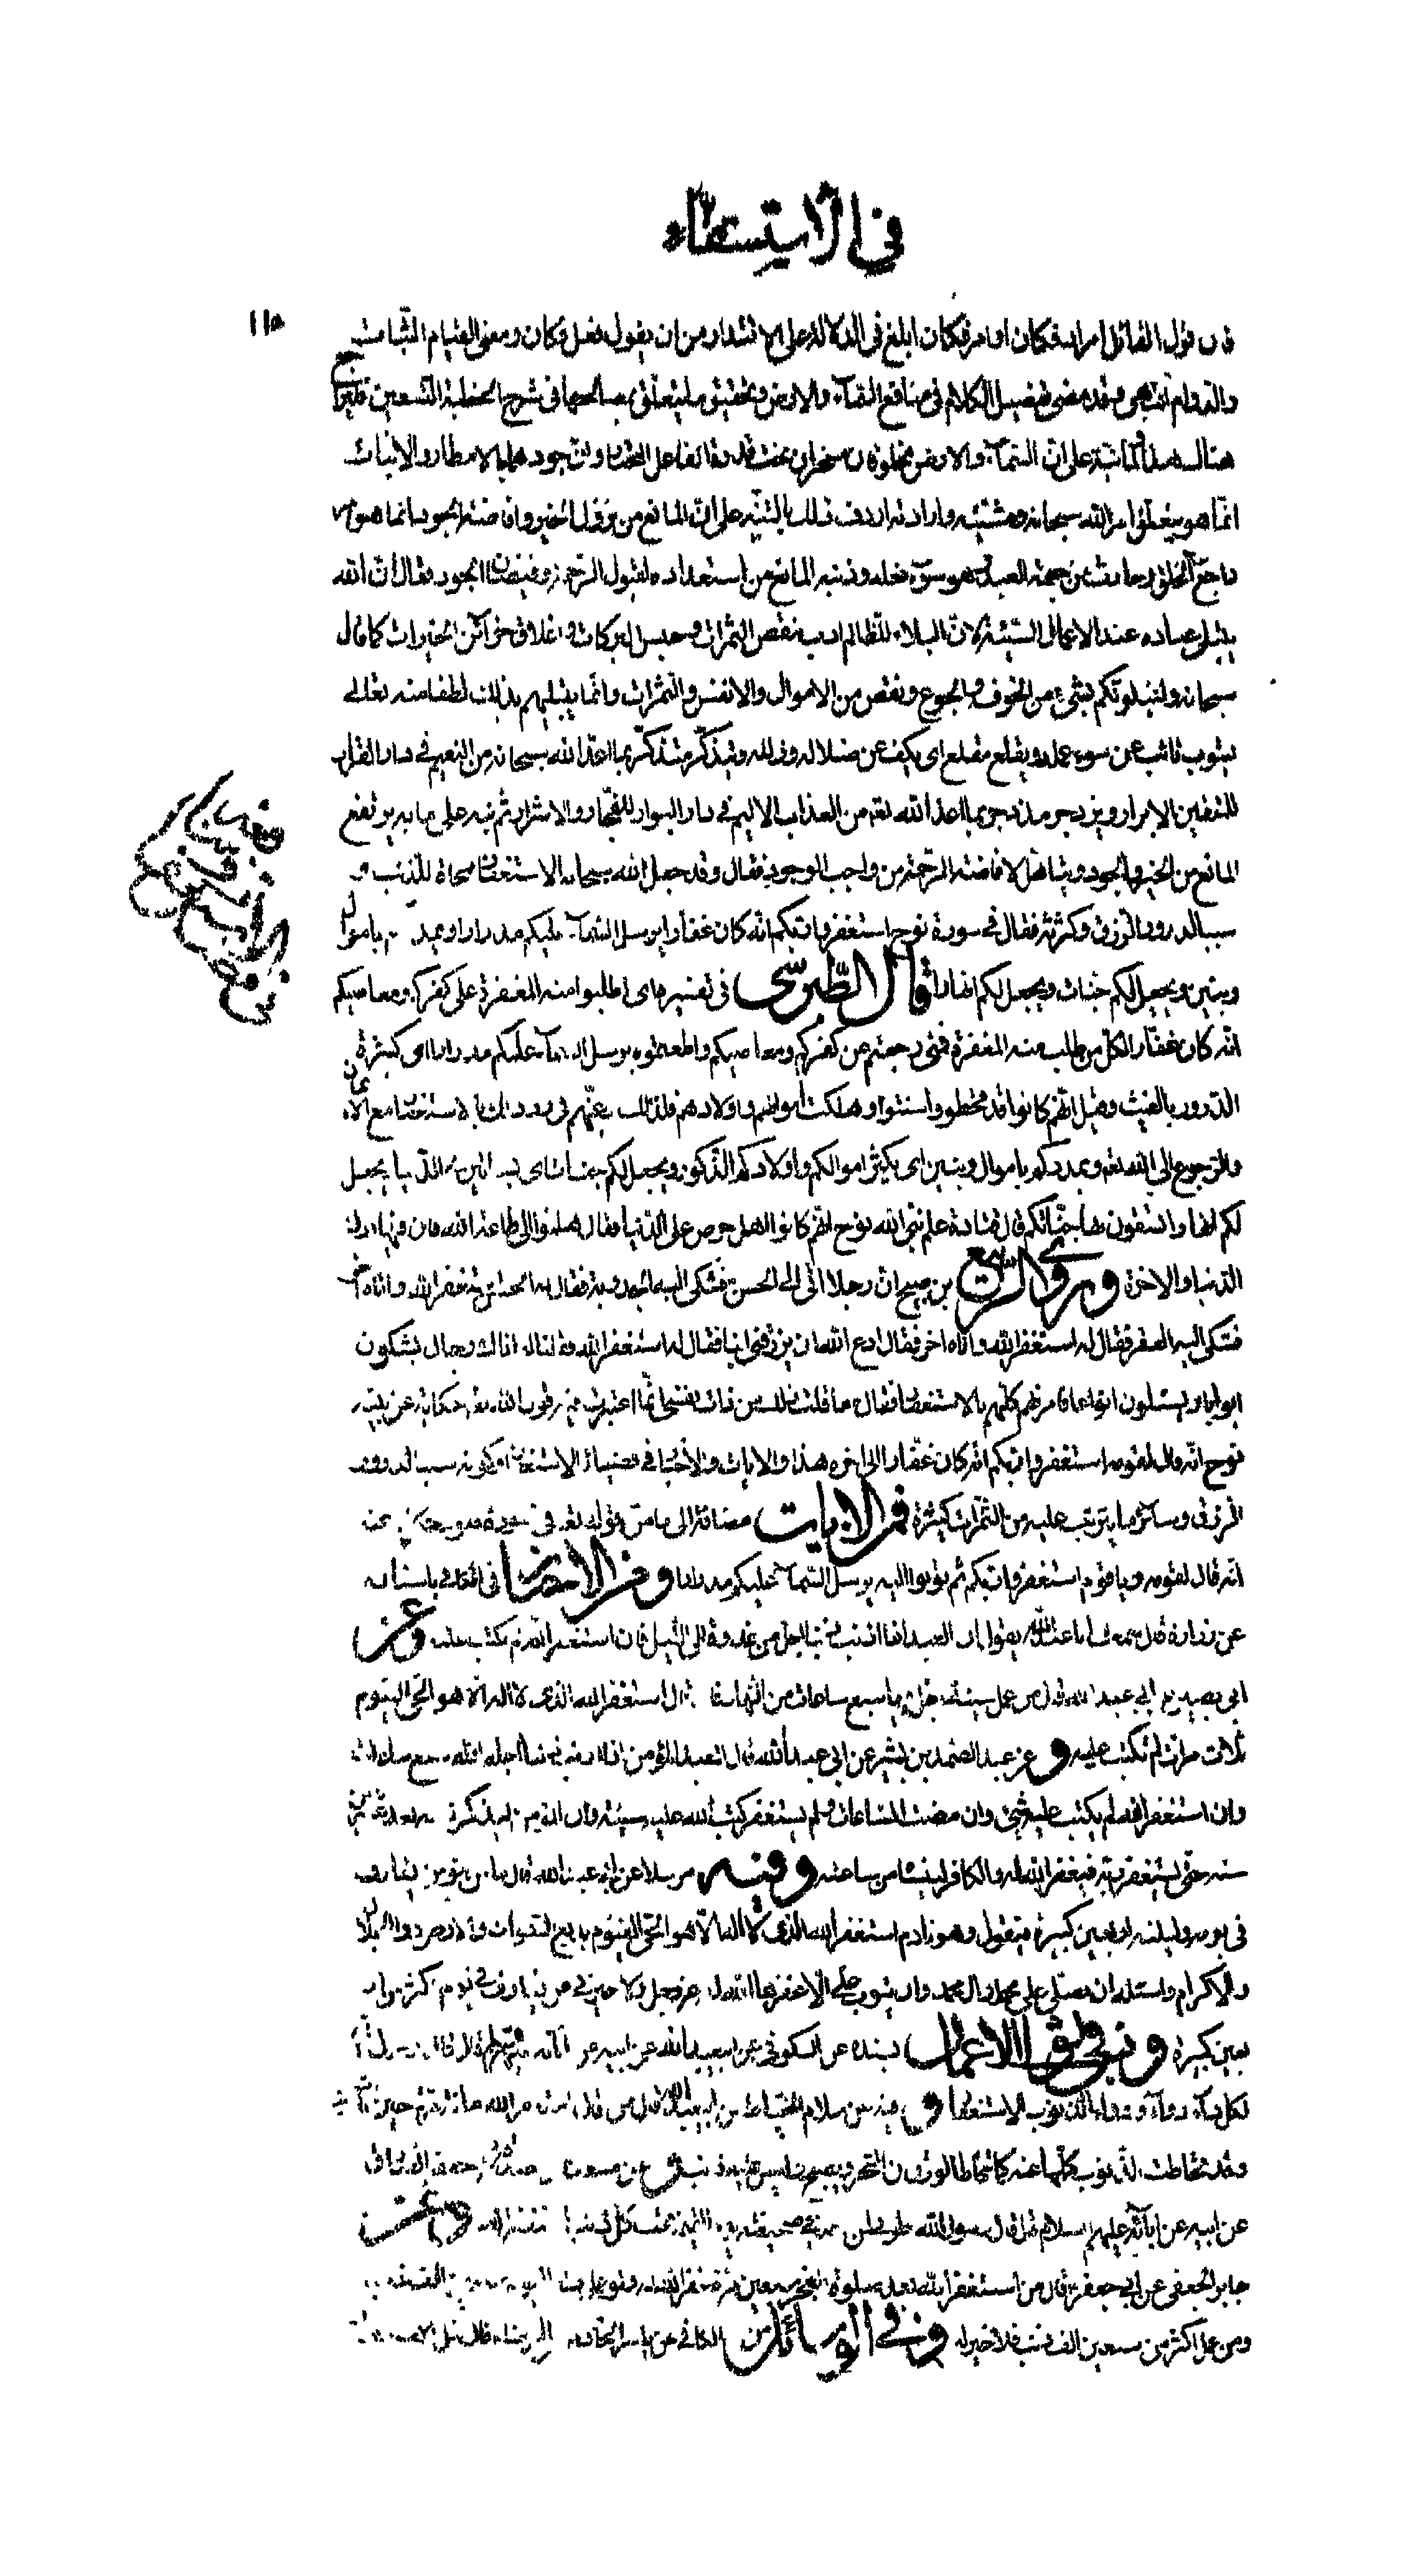 في الاستسقاء
١١٥
قول القائل امرته فكان او امر فكان ابلغ في الدلالة على الاقتدار من ان يقول فعل فكان ومعنى القيام الثبات
والدوام انتهى وقد مضى تفصيل الكلام في منافع السماء والارض وتحقيق ما يتعلق بمصالحهما في شرح الخطبة التسعين فليراجع
هناك على ان السماء والارض مخلوقان مسخران تحت قدرة الفاعل المختار وان جودهما بالامطار والانبات
انما هو بتعلق امر الله سبحانه ومشيته وارادته اردف ذلك بالتنبيه على ان المانع من نزول الخير وافاضة الجود انما هو
من جهة العبد وهو سوء فعله وذنبه المانع من استعداده لقبول الرحمة وفيضان الجود فقال ان الله
يبتلي عباده عند الاعمال السيئة لان البلاء للظالم ادب بنقص الثمرات وحبس البركات واغلاق خزائن الخيرات كما قال
سبحانه ولنبلونكم بشيء من الخوف والجوع ونقص من الاموال والانفس والثمرات وانما يبتليهم بذلك لطفا منه تعالى
ليتوب تائب عن سوء عمله ويقلع مقلع اى يكف عن ضلاله وزلله ويتذكر متذكر بما اعد الله سبحانه من النعيم في دار القرار
للمتقين الابرار ويزدجر مزدجر بما اعد الله تعه من العذاب الاليم في دار البوار للفجار والاشرار ثم نبه على ما به يرتفع
المانع من الخير والجود ويتاهل لافاضة الرحمة من واجب الوجود فقال وقد جعل الله سبحانه الاستغفار ممحاة للذنب و
سببا لدرور الرزق وكثرته فقال في سورة نوح استغفروا ربكم انه كان غفارا يرسل السماء عليكم مدرارا ويمددكم باموال
وبنين ويجعل لكم جنات ويجعل لكم انهارا قال الطبرسى في تفسيره اى اطلبوا منه المغفرة على كفركم ومعاصيكم
انه كان غفارا لكل من طلب منه المغفرة فمتى رجعتم عن كفركم ومعاصيكم واطعتموه يرسل السماء عليكم مدرارا اى كثيرة
الدرور بالغيث وقيل انهم كانوا قد قحطوا واسنتوا وهلكت اموالهم واولادهم فلذلك رغبهم في رد ذلك بالاستغفار مع الايمان
والرجوع الى الله تعه ويمددكم باموال وبنين اى يكثر اموالكم واولادكم الذكور ويجعل لكم جنات اى بساتين في الدنيا ويجعل
لكم انهارا تسقون بها جناتكم قال قتادة علم نبي الله نوح انهم كانوا اهل حرص على الدنيا فقال هلموا الى طاعة الله فان فيها درك
الدنيا والاخرة وروى الربيع بن صبيح ان رجلا اتى الحسن فشكى اليه الجدوبة فقال له الحسن استغفر الله واتاه آخر
فشكى اليه الفقر فقال له استغفر الله واتاه اخر فقال ادع الله ان يرزقني ابنا فقال له استغفر الله فقلنا له اتاك رجال يشكون
ابوابا ويسئلون انواعا فامرتهم كلهم بالاستغفار فقال ما قلت ذلك من ذات نفسي انما اعتبرت فيه قول الله تعه حكاية عن نبيه
نوح انه قال لقومه استغفروا ربكم انه كان غفارا الى اخره هذا والايات والاخبار في فضيلة الاستغفار وكونه سببا لدرور
الرزق وساير ما يترتب عليه من الثمرات كثيرة فمن الايات مضافة الى ما مر قوله تعه في سورة هود حكاية عنه
انه قال لقومه ويا قوم استغفروا ربكم ثم توبوا اليه يرسل السماء عليكم مدرارا ومن الاخبار في الكافي باسناده
عن زرارة قال سمعت ابا عبد الله يقول ان العبد اذا اذنب ذنبا اجل من غدوة الى الليل فان استغفر الله لم يكتب عليه وعن
ابي بصير عن ابي عبد الله قال من عمل سيئة اجل فيها سبع ساعات من النهار فان قال استغفر الله الذى لا اله الا هو الحى القيوم
ثلاث مرات لم تكتب عليه وعن عبد الصمد بن بشير عن ابي عبد الله قال العبد المؤمن اذا اذنب ذنبا اجله الله سبع ساعات
وان استغفر الله لم يكتب عليه شيء وان مضت الساعات ولم يستغفر كتب الله عليه سيئة وان المؤمن ليذكر ذنبه بعد عشرين
سنة حتى يستغفر ربه فيغفر الله له والكافر لينساه من ساعته وفيه مرسلا عن ابي عبد الله قال ما من مؤمن يقارف
في يومه وليلته اربعين كبيرة فيقول وهو نادم استغفر الله الذى لا اله الا هو الحى القيوم بديع السموات والارض ذو الجلال
والاكرام واسئله ان يصلى على محمد وال محمد وان يتوب على الا غفرها الله عز وجل ولا خير في من يقارف في يوم اكثر من ار
بعين كبيرة وفي ثواب الاعمال بسنده عن السكوني عن ابي عبد الله عن ابيه عن آبائه قال قال رسول الله
لكل داء دواء ودواء الذنوب الاستغفار وفيه عن سلام الخياط عن ابي عبد الله قال من قال استغفر الله مائة مرة حين ينام
وقد تحاتت الذنوب كلها عنه كما يتحات الورق من الشجر ويصبح وليس عليه ذنب وعن
عن ابيه عن آبائه عليهم السلام قال قال رسول الله طوبى لمن وجد في صحيفة عمله يوم القيمة تحت كل ذنب استغفر الله وعن
جابر الجعفى عن ابي جعفر قال من استغفر الله بعد صلوة الفجر سبعين مرة غفر الله له ولو عمل
ومن عمل اكثر من سبعين الف ذنب فلا خير له وفي الوسائل من الكافي عن ياسر الخادم عن الرضا قال مثل الاستغفار